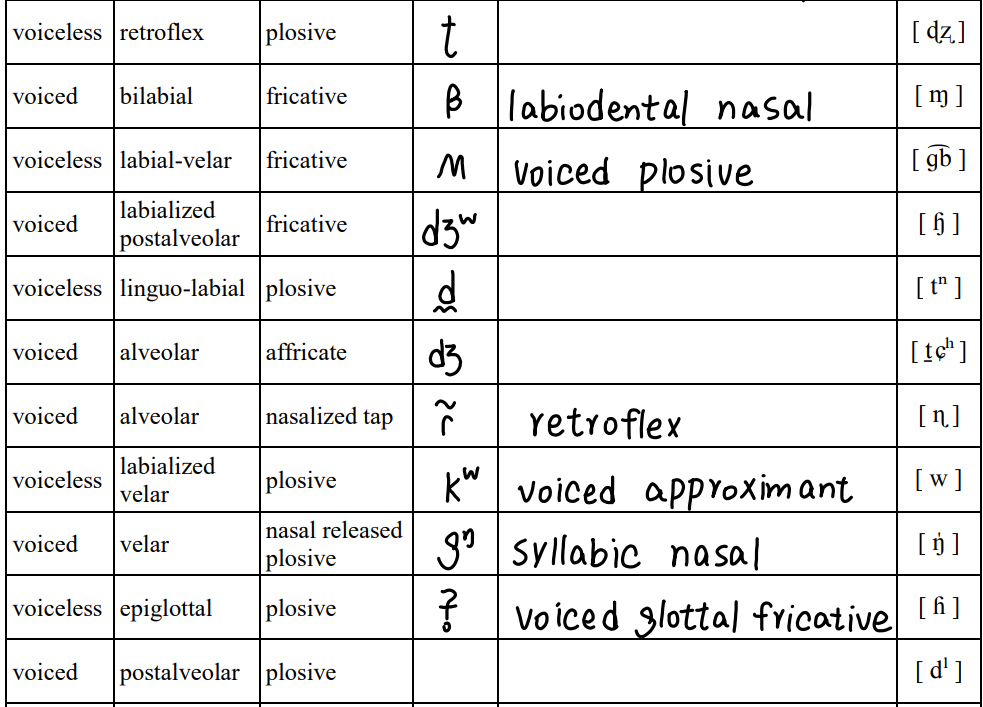 voiceless retroflex plosive ʈ [ dʐ ]
voiced bilabial fricative β labiodental nasal [ ɱ ]
voiceless labial-velar fricative ʍ voiced plosive [ ɡ͡b ]
voiced labialized postalveolar fricative dʒʷ [ ɧ ]
voiceless linguo-labial plosive d̼ [ tⁿ ]
voiced alveolar affricate dʒ [ t̠ɕʰ ]
voiced alveolar nasalized tap ɾ̃ retroflex [ ɳ ]
voiceless labialized velar plosive kʷ voiced approximant [ w ]
voiced velar nasal released plosive gᵑ syllabic nasal [ ŋ̍ ]
voiceless epiglottal plosive ʡ̥ voiced glottal fricative [ ɦ ]
voiced postalveolar plosive [ dˡ ]